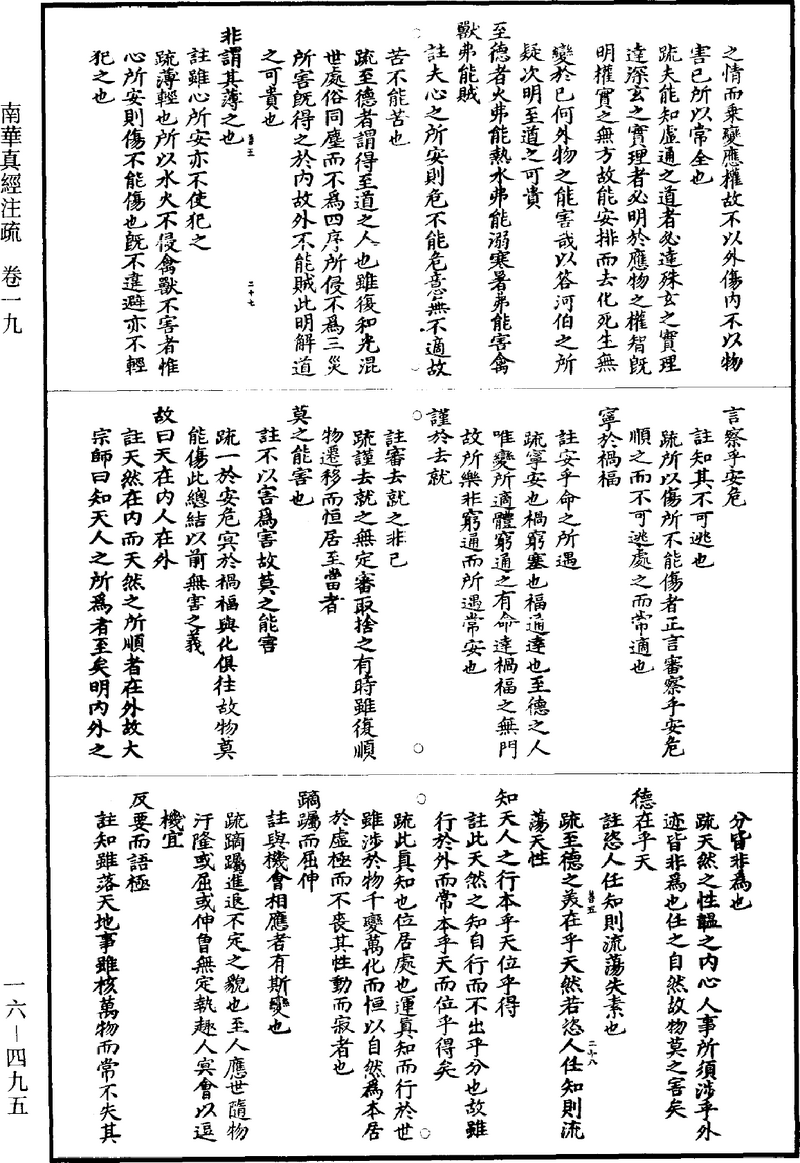 之情而乘變應權故不以外傷内不以物
害己所以常全也
疏夫能知虛通之道者必達殊玄之實理
達深玄之實理者必明於應物之權智既
明權實之無方故能安排而去化死生無
變於己何外物之能害哉以答河伯之所
疑次明至道之可貴
至德者火弗能熱水弗能溺寒暑弗能害禽
獸弗能賊
註夫心之所安則危不能危意無不適故
苦不能苦也
疏至德者謂得至道之人也雖復和光混
世處俗同塵而不爲四序所侵不爲三災
所害既得之於内故外不能賊此明解道
之可貴也
非謂其薄之也
註雖心所安亦不使犯之
疏薄輕也所以水火不侵禽獸不害者惟
心所安則傷不能傷也既不違避亦不輕
犯之也
言察乎安危
註知其不可逃也
疏所以傷所不能傷者正言審察乎安危
順之而不可逃處之而常適也
寧於禍福
註安乎命之所遇
疏寧安也禍窮塞也福通達也至德之人
唯變所適體窮通之有命達禍福之無門
故所樂非窮通而所遇常安也
謹於去就
註審去就之非己
疏謹去就之無定審取捨之有時雖復順
物遷移而恒居至當者
莫之能害也
註不以害爲害故莫之能害
疏一於安危冥於禍福與化俱往故物莫
能傷此總結以前無害之義
故曰天在内人在外
註天然在内而天然之所順者在外故大
宗師曰知天人之所爲者至矣明内外之
分皆非爲也
疏天然之性韞之内心人事所須涉乎外
迹皆非爲也任之自然故物莫之害矣
德在乎天
註恣人任知則流蕩失素也
疏至德之美在乎天然若恣人任知則流
蕩天性
知天人之行本乎天位乎得
註此天然之知自行而不出乎分也故雖
行於外而常本乎天而位乎得矣
疏此真知也位居處也運真知而行於世
雖涉於物千變萬化而恒以自然爲本居
於虛極而不喪其性動而寂者也
蹢躅而屈伸
註與機會相應者有斯變也
疏蹢躅進退不定之貌也至人應世隨物
汙隆或屈或伸曾無定執趣人冥會以逗
機宜
反要而語極
註知雖落天地事雖核萬物而常不失其
南華真經注疏 卷一九
一六—四九五
善五
二十七
善五
二十八